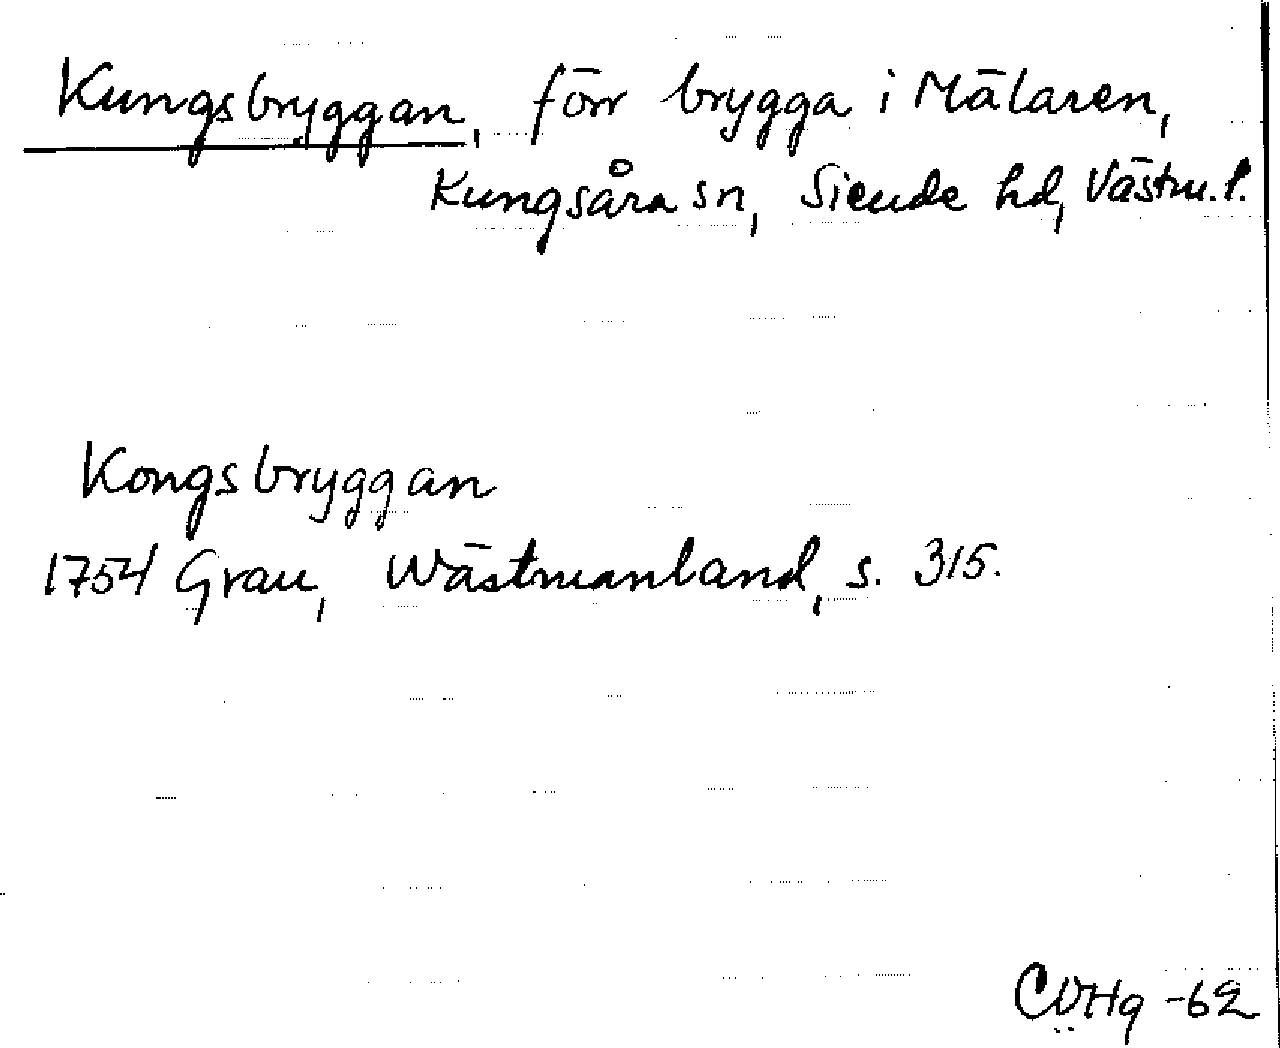 Kungsbryggan, förr brygga i Mälaren,
Kungsåra sn, Siende hd, Västm. l.
Kongsbryggan
1754 Grau, Wästmanland, s. 315.
-62